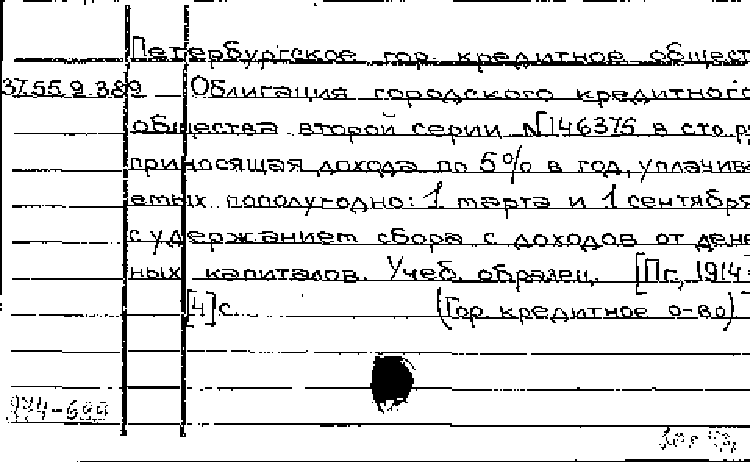 Петербургское гор. кредитное общест
37.55.2.389 Облигация городского кредитного
общества второй серии №146375 в сто ру
приносящая дохода по 5% в год, уплачива
емых пополугодно: 1 марта и 1 сентября
с удержанием сбора с доходов от дене
ных капиталов. Учеб. образец. [Пг., 1914-
[4]с. (Гор. кредитное о-во)